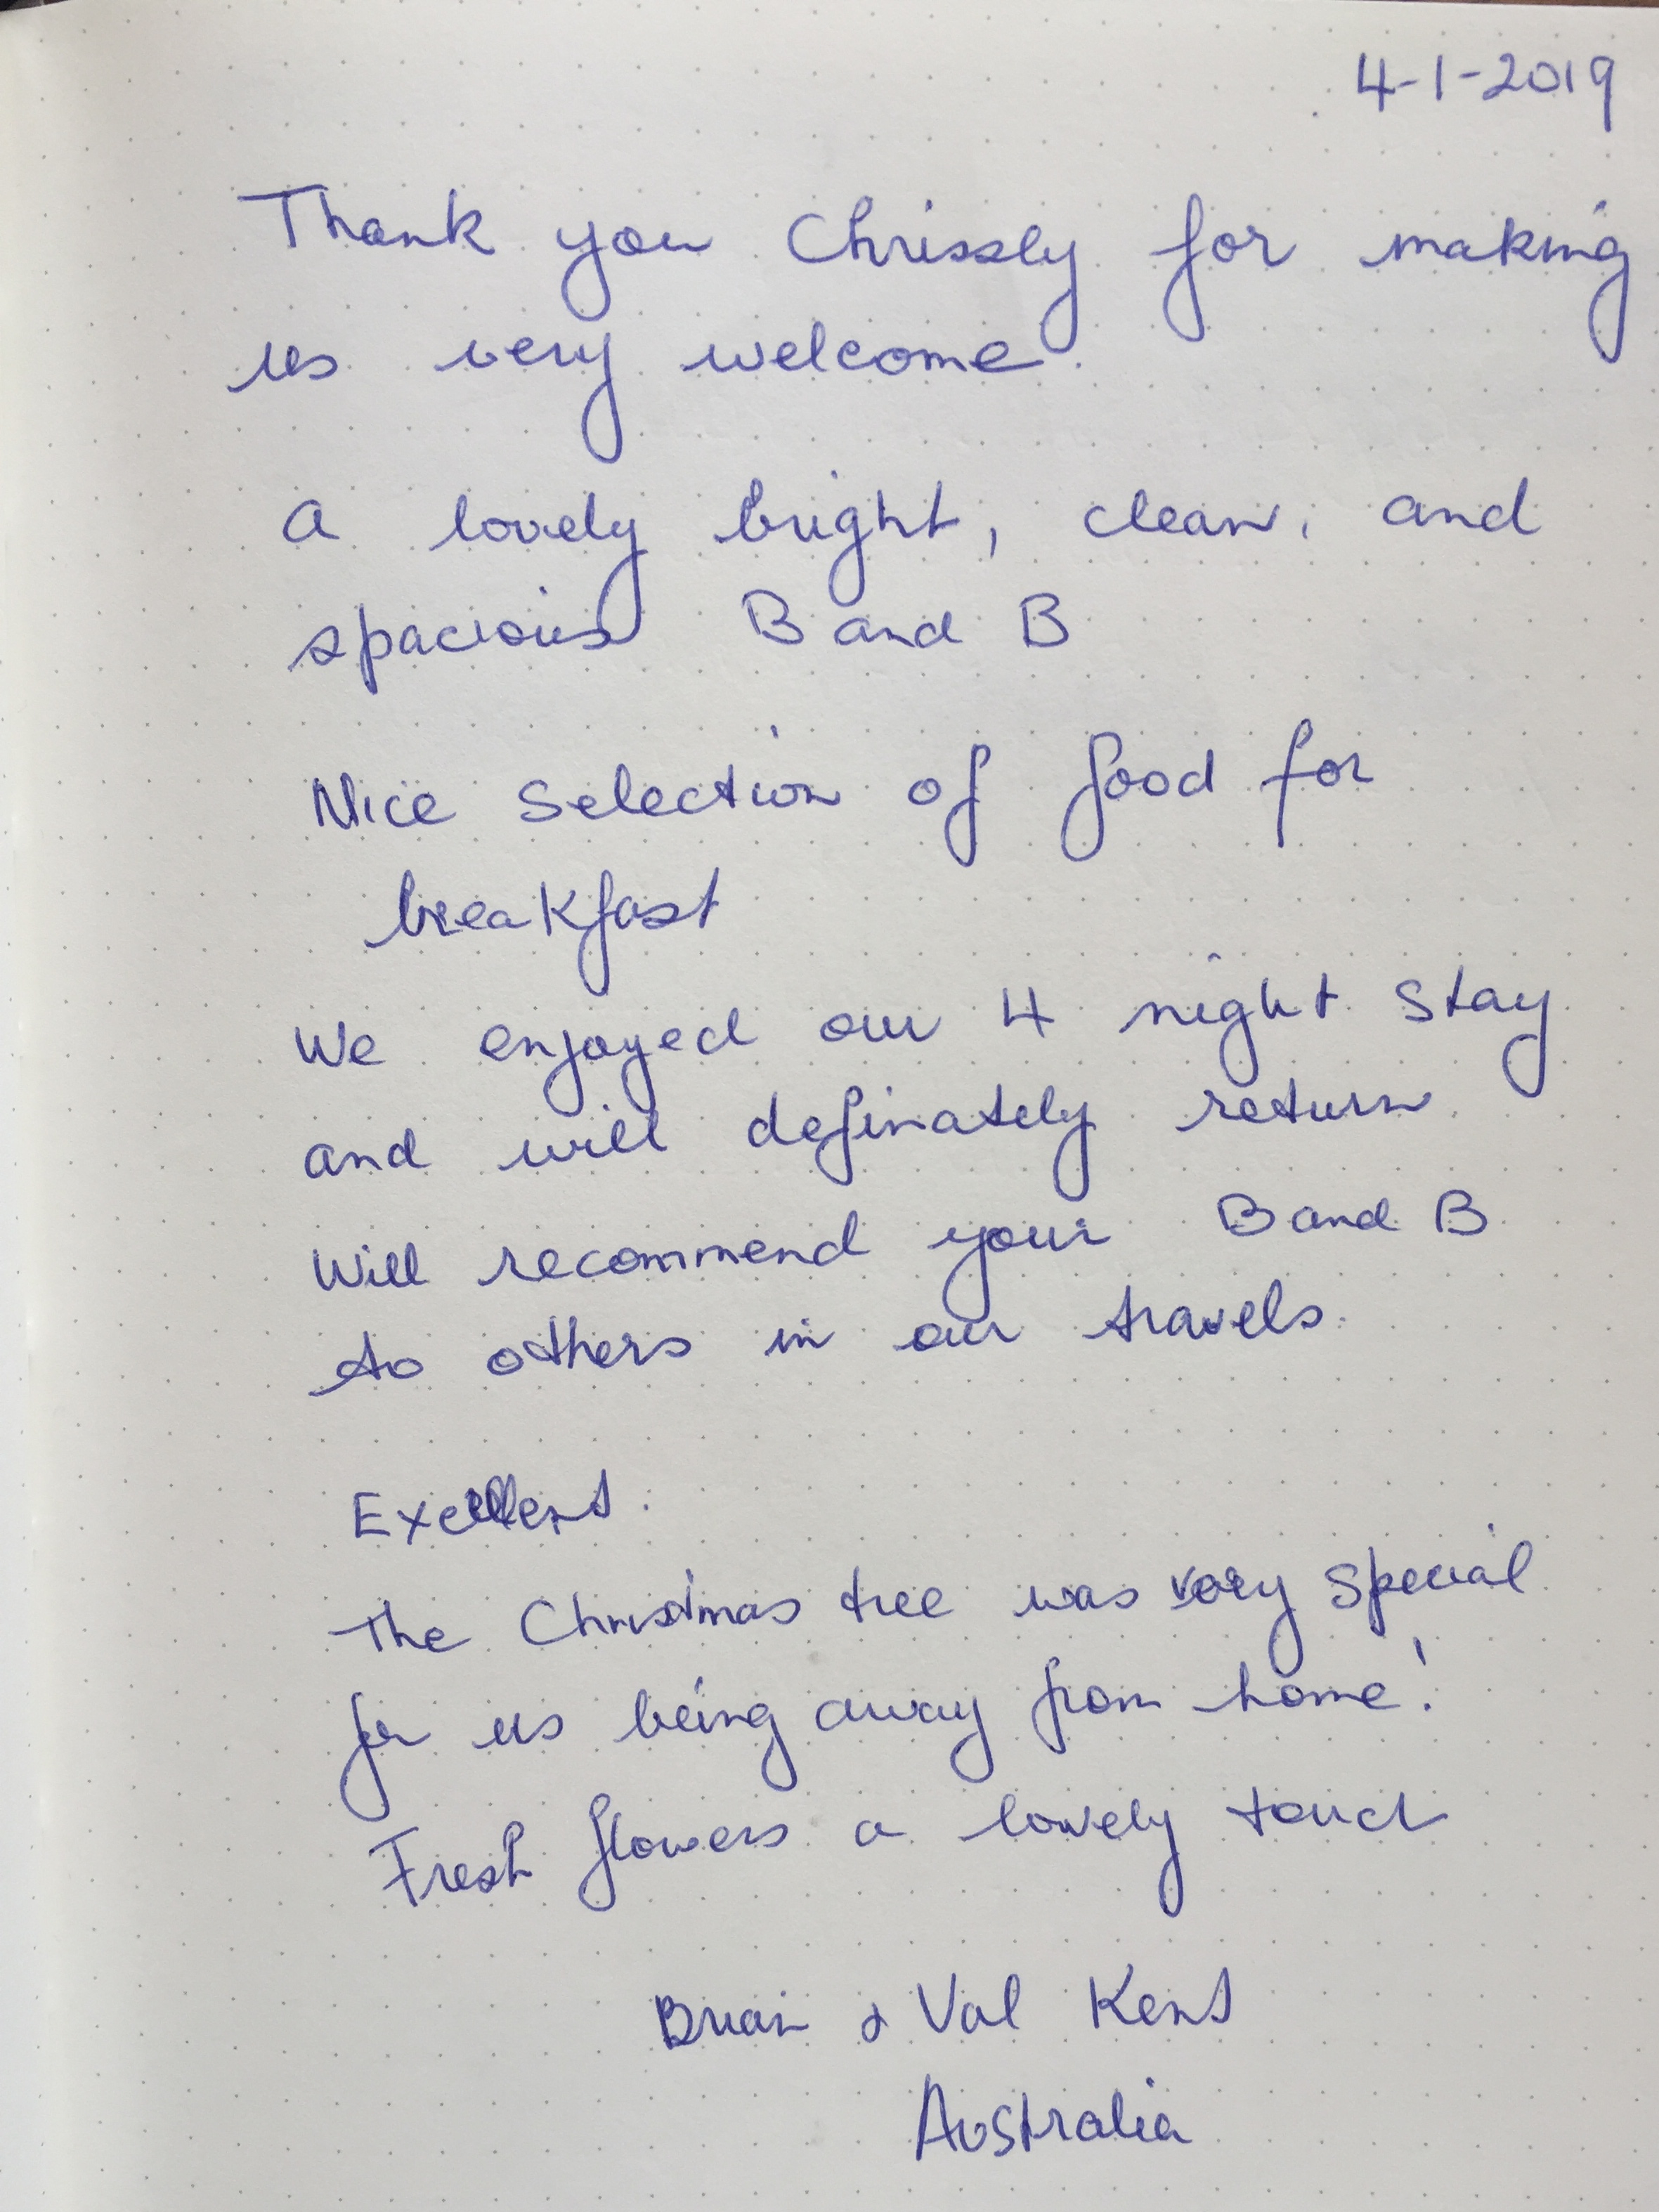 4-1-2019
Thank you Chrissly for making
us very welcome.
A lovely bright, clean, and
spacious B and B
Nice selection of food for
breakfast
We enjoyed our 4 night stay
and will definately return.
Will recommend your B and B
to others in our travels.
Excellent.
The Christmas tree was very special
for us being away from home!
Fresh flowers a lovely touch
Brian & Val Kent
Australia